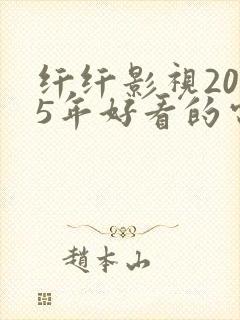 纤纤影視20
5年好看的
趙本山